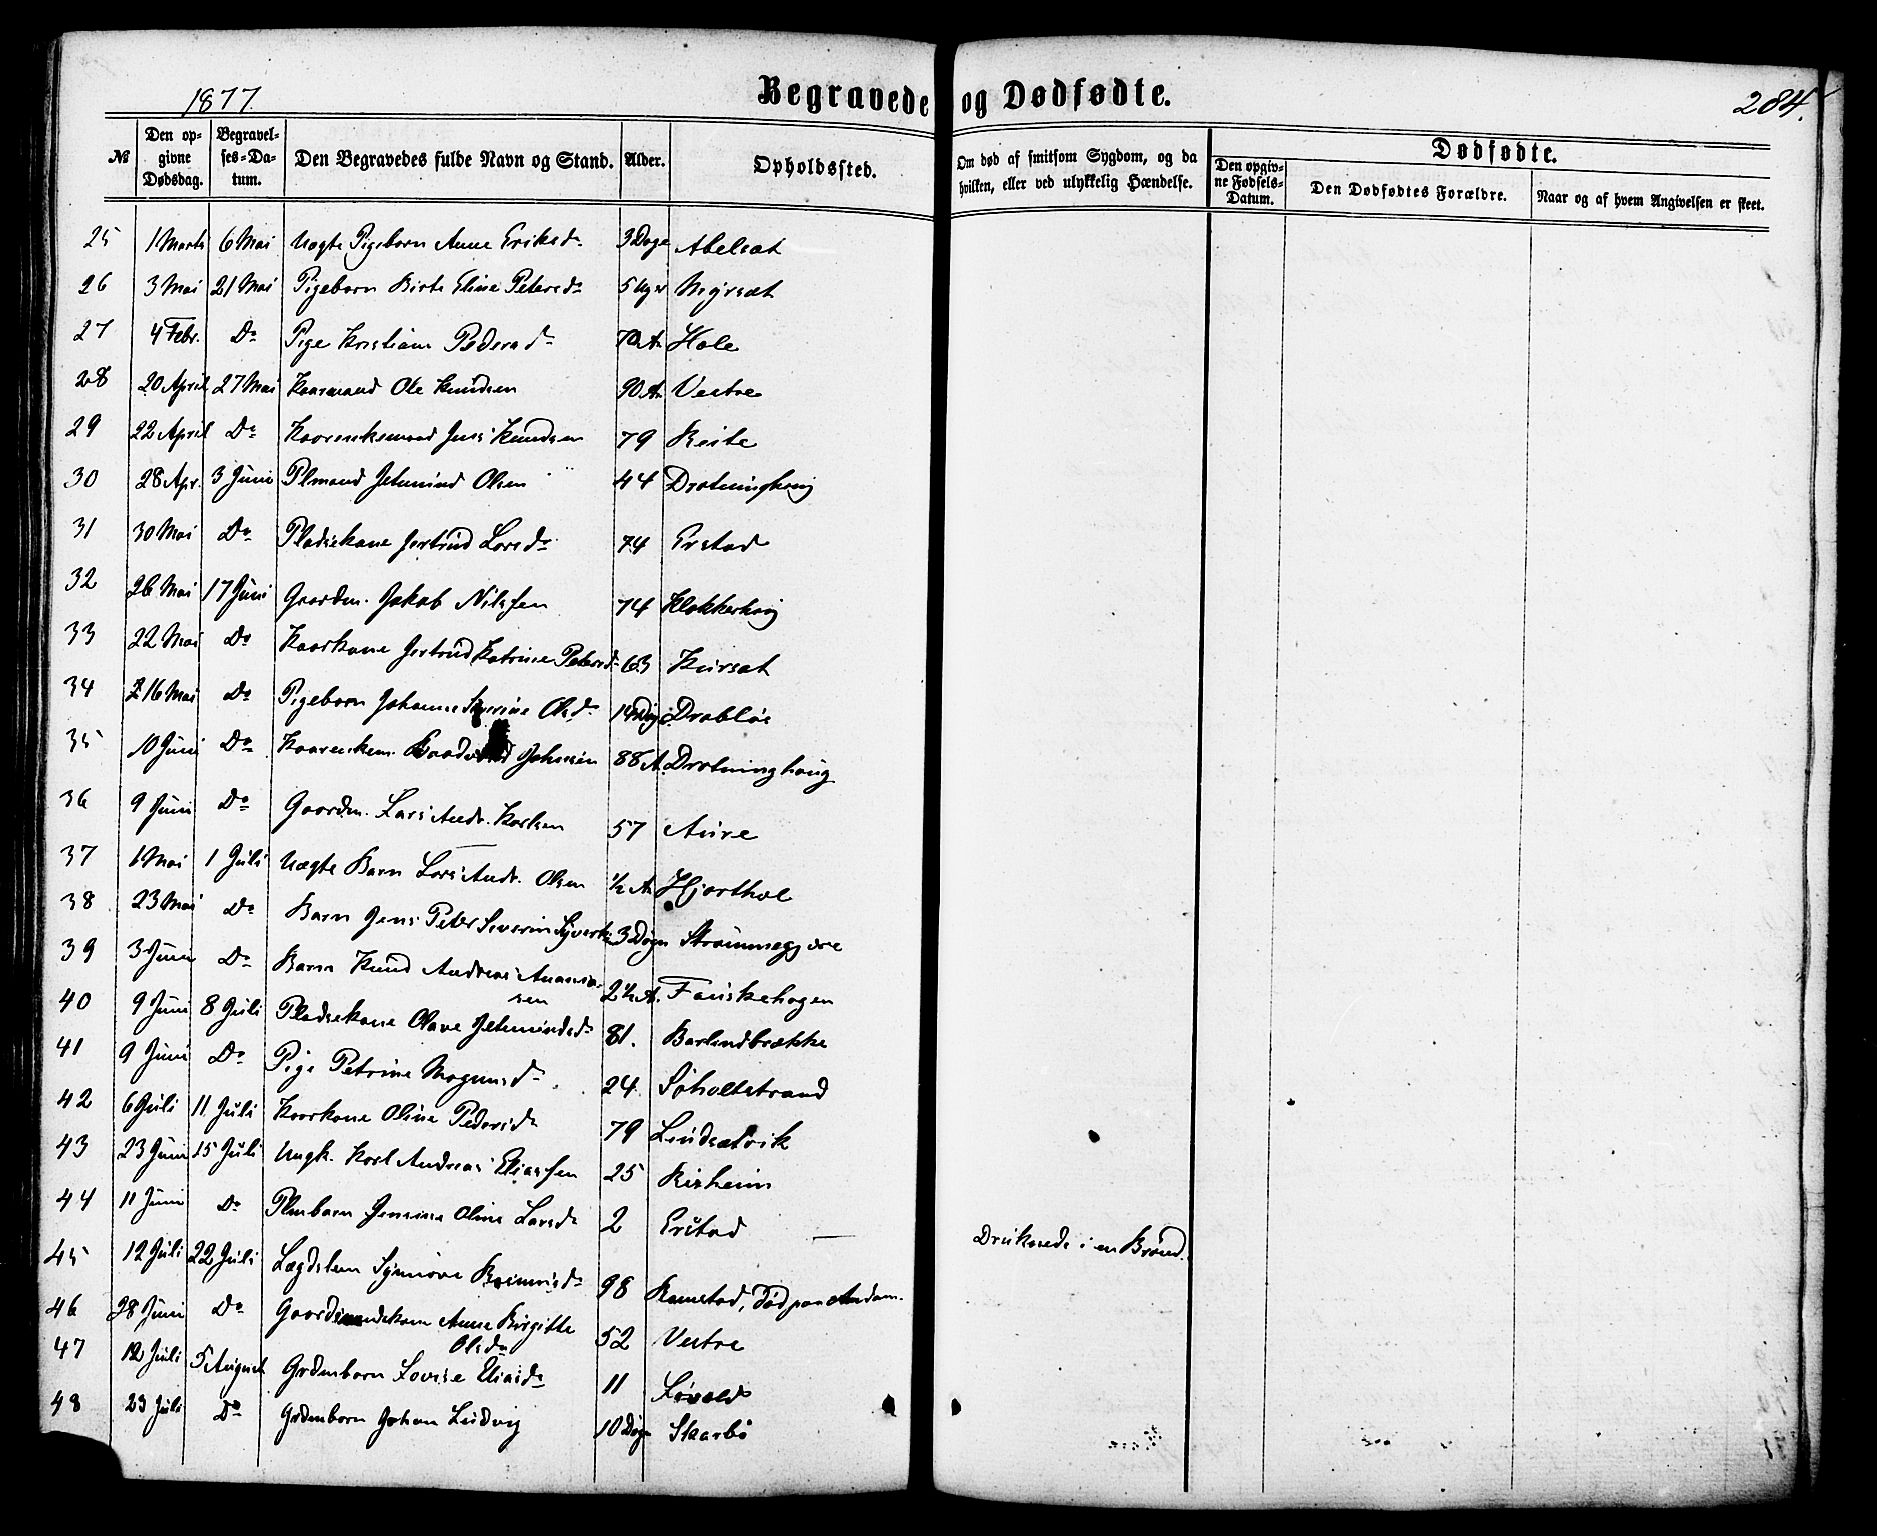 1877.
Begravede og Dødfødte.
284.
№
Den opgivne Dødsdag.
Begravelses-Datum.
Den Begravedes fulde Navn og Stand.
Alder.
Opholdssted.
Om død af smitsom Sygdom, og da hvilken, eller ved ulykkelig Hændelse.
Dødfødte.
Den opgivne Fødsels-Datum.
Den Dødfødtes Forældre.
Naar og af hvem Angivelsen er skeet.
25 1 Marts 6 Mai Uægte Pigebarn Anne Eriksdr 3 Døge Abelsæt
26 3 Mai 21 Mai Pigebarn Birte Eline Petersdr 5 Uger Myrsæt
27 4 Febr. Do Pige Kristiane Pedersdr Hole
28 20 April 27 Mai Kaarmand Ole Knudsen 90 Ar Vestre
29 22 April Do Kaarenkemand Jens Knudsen 79 Reite
30 28 Apr. 3 Juni Plmand Jetmund Olsen 44 Drotninghaug
31 30 Mai Do Pladsekone Gertrud Larsdr 74 Erstad
32 26 Mai 17 Juni Gaardm. Jakob Nilssen 74 Klokkerhaug
33 22 Mai Do Kaarkone Gertrud Katrine Petersdr 63 Kursæt
34 16 Mai Do Pigebarn Johanne Severine Olsdr 14 Døge Drabløs
35 10 Juni Do Kaarenkem. Johnsen 88 A. Drotninghaug
36 9 Juni Do Gaardm. Lars Andr. Karlsen 57 Aure
37 1 Mai 1 Juli Uægte Barn Lars Andr. Olsen ½ Ar Hjorthol
38 23 Mai Do Barn Jens Peter Severin Syverts. 3 Døgn Strømmegjære
39 3 Juni Do Barn Knud Andreas Ananias-
sen 2½ A. Fauskehagen
40 9 Juni 8 Juli Pladsekone Olave Jetmundsdr 81. Barlindbrække
41 9 Juni Do Pige Petrine Mogensdr 24. Søholtstrand
42 6 Juli 11 Juli Kaarkone Oline Pedersdr 79 Lindsætvik
43 23 Juni 15 Juli Ungk. Karl Andreas Eliassen 25 Risheim
44 11 Juni Do Plmbarn Jensine Oline Larsdr 2 Erstad Druknede i en Brønd.
45 12 Juli 22 Juli Lægdslem Synnøve 98 Ramstad, død paa Andam.
46 28 Juni Do Gaardmandskone Anne Birgitte
Olsdr 52 Vestre
47 12 Juli 5 August Grdmbarn Lovise Eliasdr 11 Løvold
48 23 Juli Do Grdmbarn Johan Ludvig 10 Døgn Skarbø